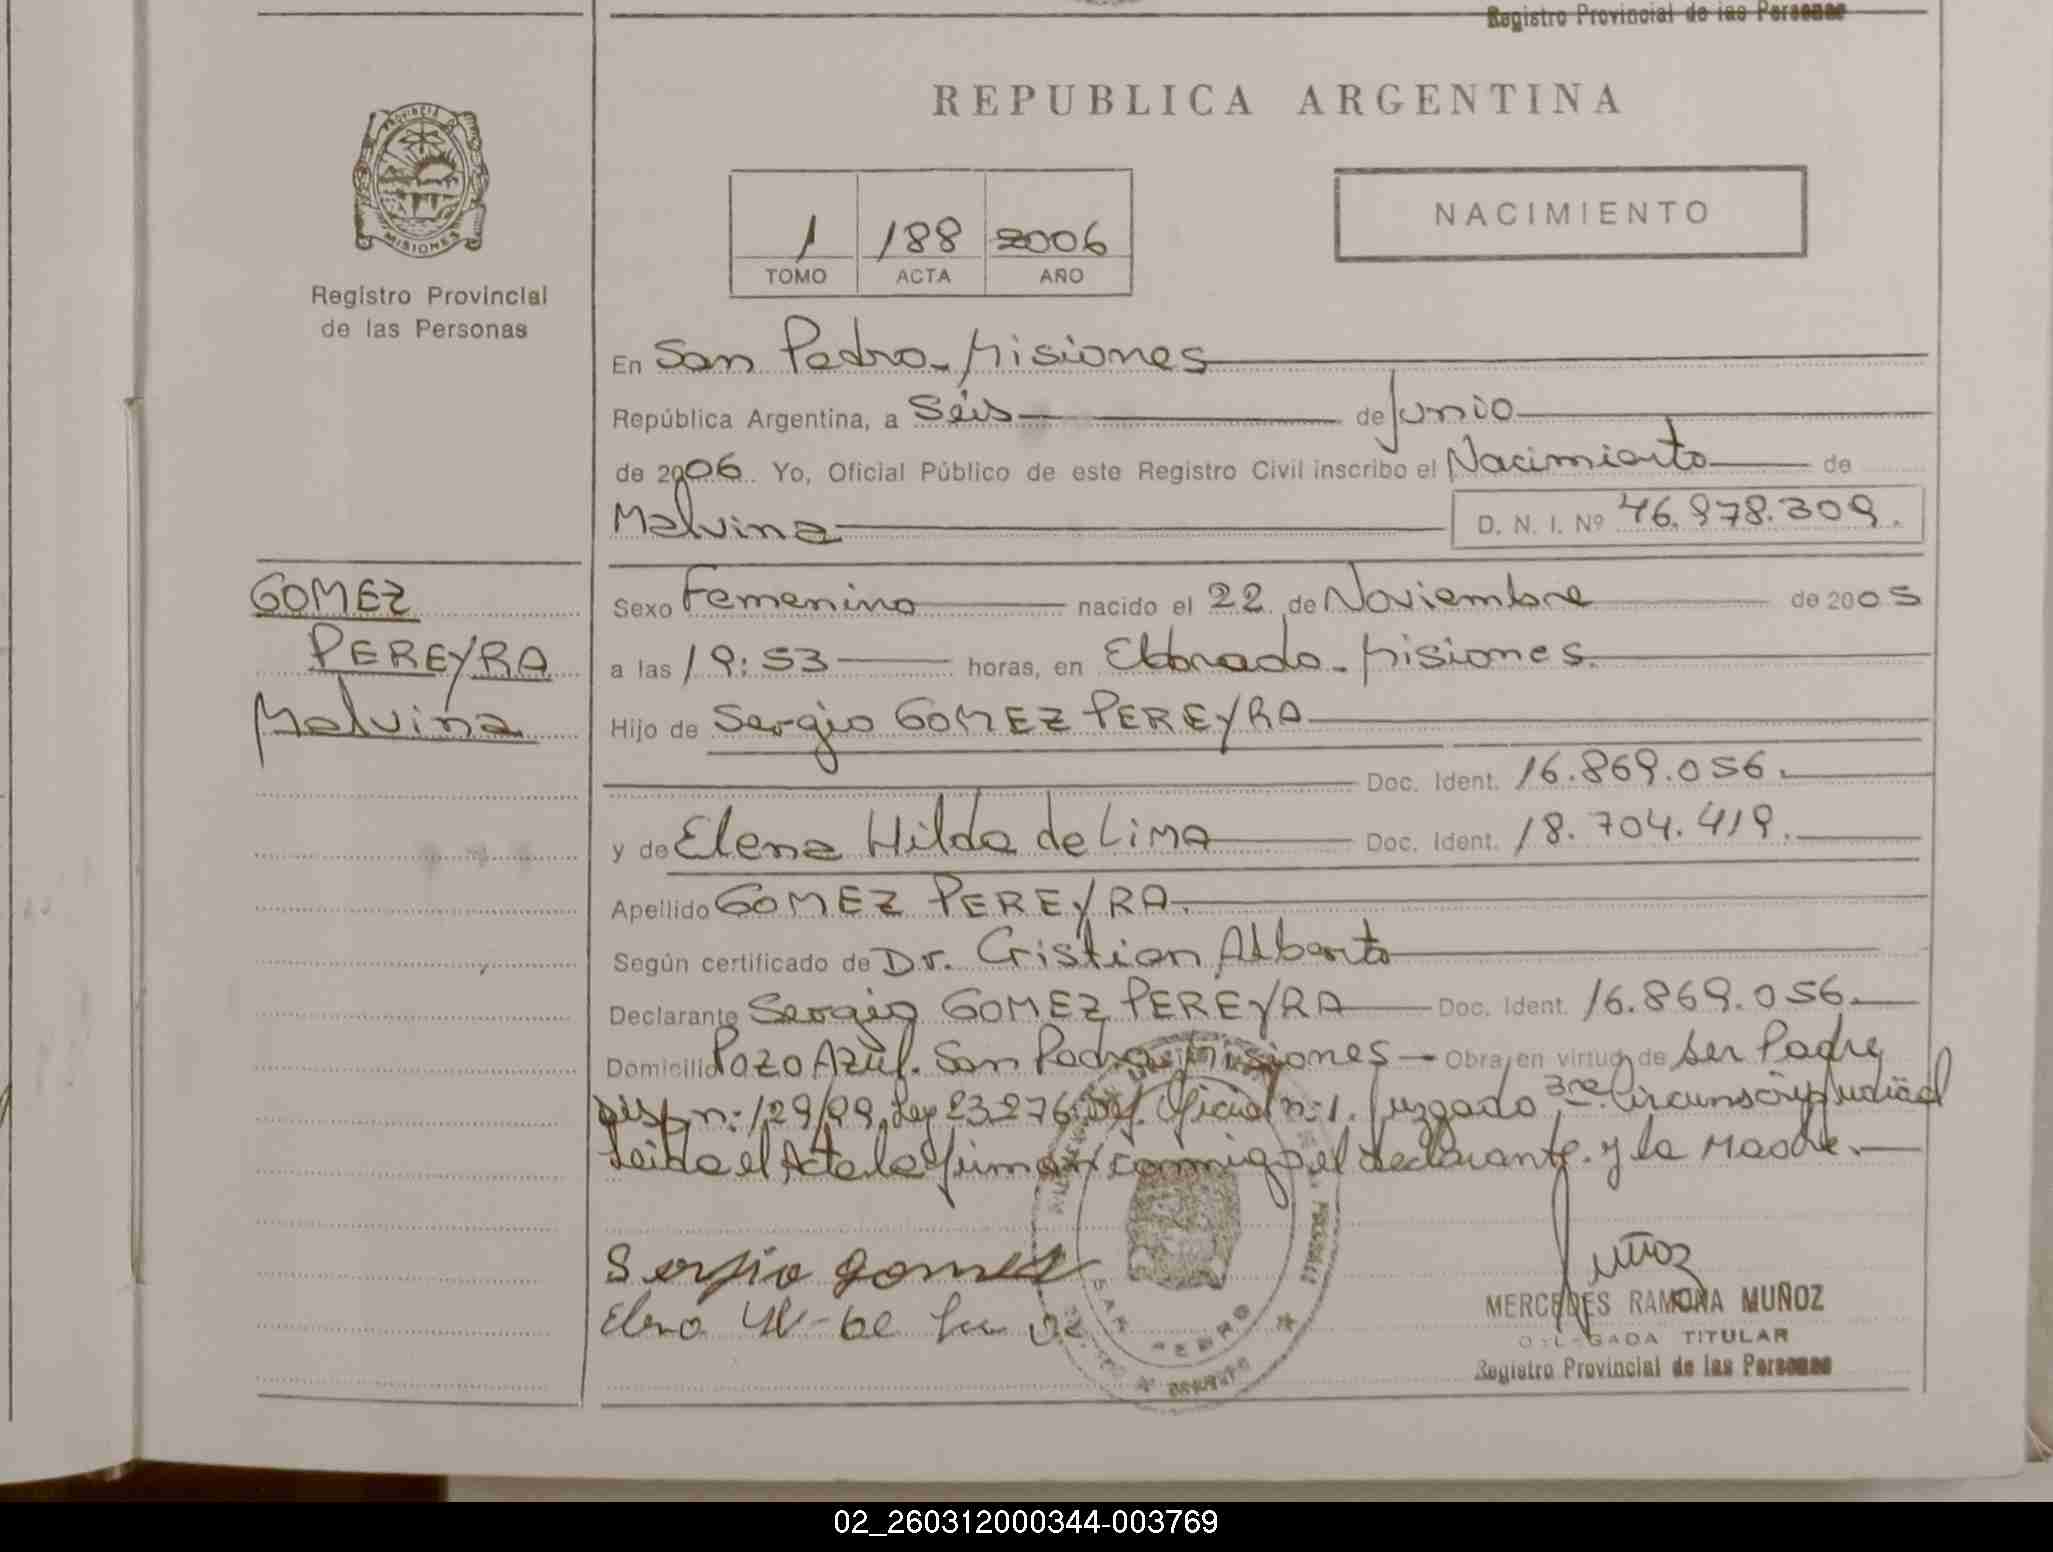 Registro Provincial de las Personas
REPUBLICA ARGENTINA
PROVINCIA D
MISIONES
Registro Provincial
de las Personas
1 188 2006
TOMO ACTA AÑO
NACIMIENTO
En San Pedro - Misiones
República Argentina, a Séis de Junio
de 2006. Yo, Oficial Público de este Registro Civil inscribo el Nacimiento de
Malvina D. N. I. Nº 46.978.309.
GOMEZ
PEREYRA
Malvina
Sexo Femenino nacido el 22 de Noviembre de 2005
a las 19:53 horas, en Eldorado - Misiones.
Hijo de Sergio GOMEZ PEREYRA
Doc. Ident. 16.869.056.
y de Elena Hilda de LIMA Doc. Ident. 18.704.419.
Apellido GOMEZ PEREYRA.
Según certificado de Dr. Cristian Alberto
Declarante Sergio GOMEZ PEREYRA Doc. Ident. 16.869.056.
Domicilio Pozo Azul. San Pedro Misiones - Obra en virtud de ser Padre
Disp n: 129/99, Ley 23.276 Def. Oficial n: 1. Juzgado 3ra. Circunscrip Judicial
Leida el Acta la firman conmigo el declarante. y la Madre.
Sergio gomez
Elena
SAN PEDRO
Muñoz
MERCEDES RAMONA MUÑOZ
DELEGADA TITULAR
Registro Provincial de las Personas
02_260312000344-003769